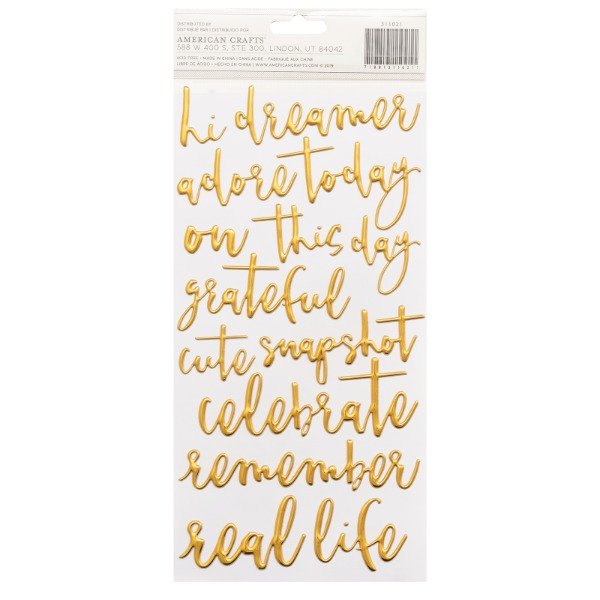 DISTRIBUTED BY
DISTRIBUÉ PAR | DISTRIBUIDO POR
AMERICAN CRAFTS
588 W 400 S, STE 300, LINDON, UT 84042
ACID FREE • MADE IN CHINA | SANS ACIDE • FABRIQUÉ AUX CHINE
LIBRE DE ÁCIDO • HECHO EN CHINA | WWW.AMERICANCRAFTS.COM © 2019
311021
hi dreamer
adore today
on this day
grateful
cute snapshot
celebrate
remember
real life